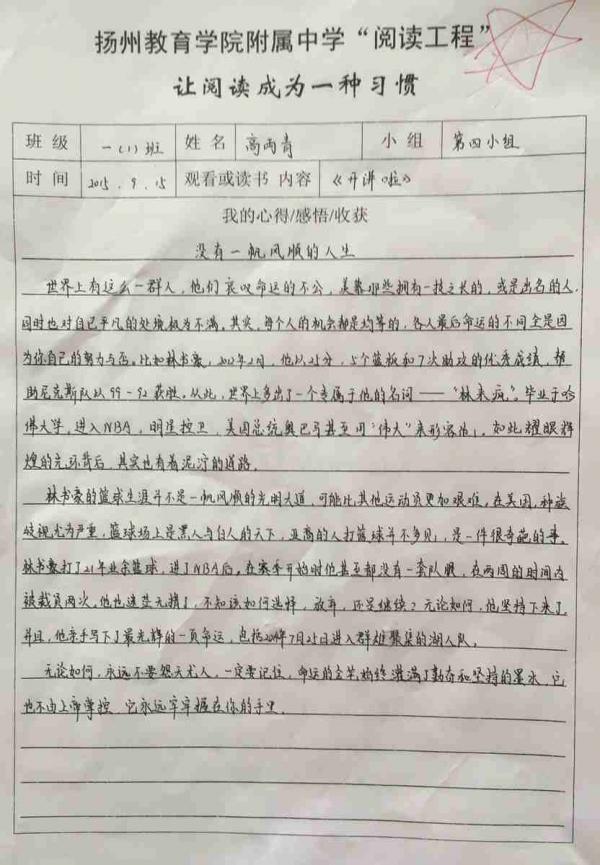 扬州教育学院附属中学“阅读工程”
让阅读成为一种习惯
班级 一(1)班 姓名 高雨青 小组 第四小组
时间 2015.9.15 观看或读书 内容 《开讲啦》
我的心得/感悟/收获
没有一帆风顺的人生
世界上有这么一群人，他们哀叹命运的不公，羡慕那些拥有一技之长的，或是出名的人，
同时也对自己平凡的处境极为不满。其实，每个人的机会都是均等的，各人最后命运的不同全是因
为你自己的努力与否。比如林书豪，2012年2月，他以25分，5个篮板和7次助攻的优秀成绩，帮
助尼克斯队以99-92获胜。从此，世界上多出了一个专属于他的名词——“林来疯”。毕业于哈
佛大学，进入NBA，明星控卫，美国总统奥巴马甚至用“伟大”来形容他，如此耀眼辉
煌的光环背后，其实也有着泥泞的道路。
林书豪的篮球生涯并不是一帆风顺的光明大道，可能比其他运动员更加艰难。在美国，种族
歧视尤为严重，篮球场上是黑人与白人的天下，亚裔的人打篮球并不多见，是一件很奇葩的事。
林书豪打了21年业余篮球，进了NBA后，在赛季开始时他甚至都没有一套队服，在两周的时间内
被裁员两次，他也迷茫无措了，不知该如何选择，放弃，还是继续？无论如何，他坚持下来了，
并且，他亲手写下了最光辉的一页命运，包括2014年7月25日进入群雄聚集的湖人队。
无论如何，永远不要怨天尤人，一定要记住，命运的 始终灌满了勤奋和坚持的墨水，它
也不由上帝掌控，它永远牢牢握在你的手里。